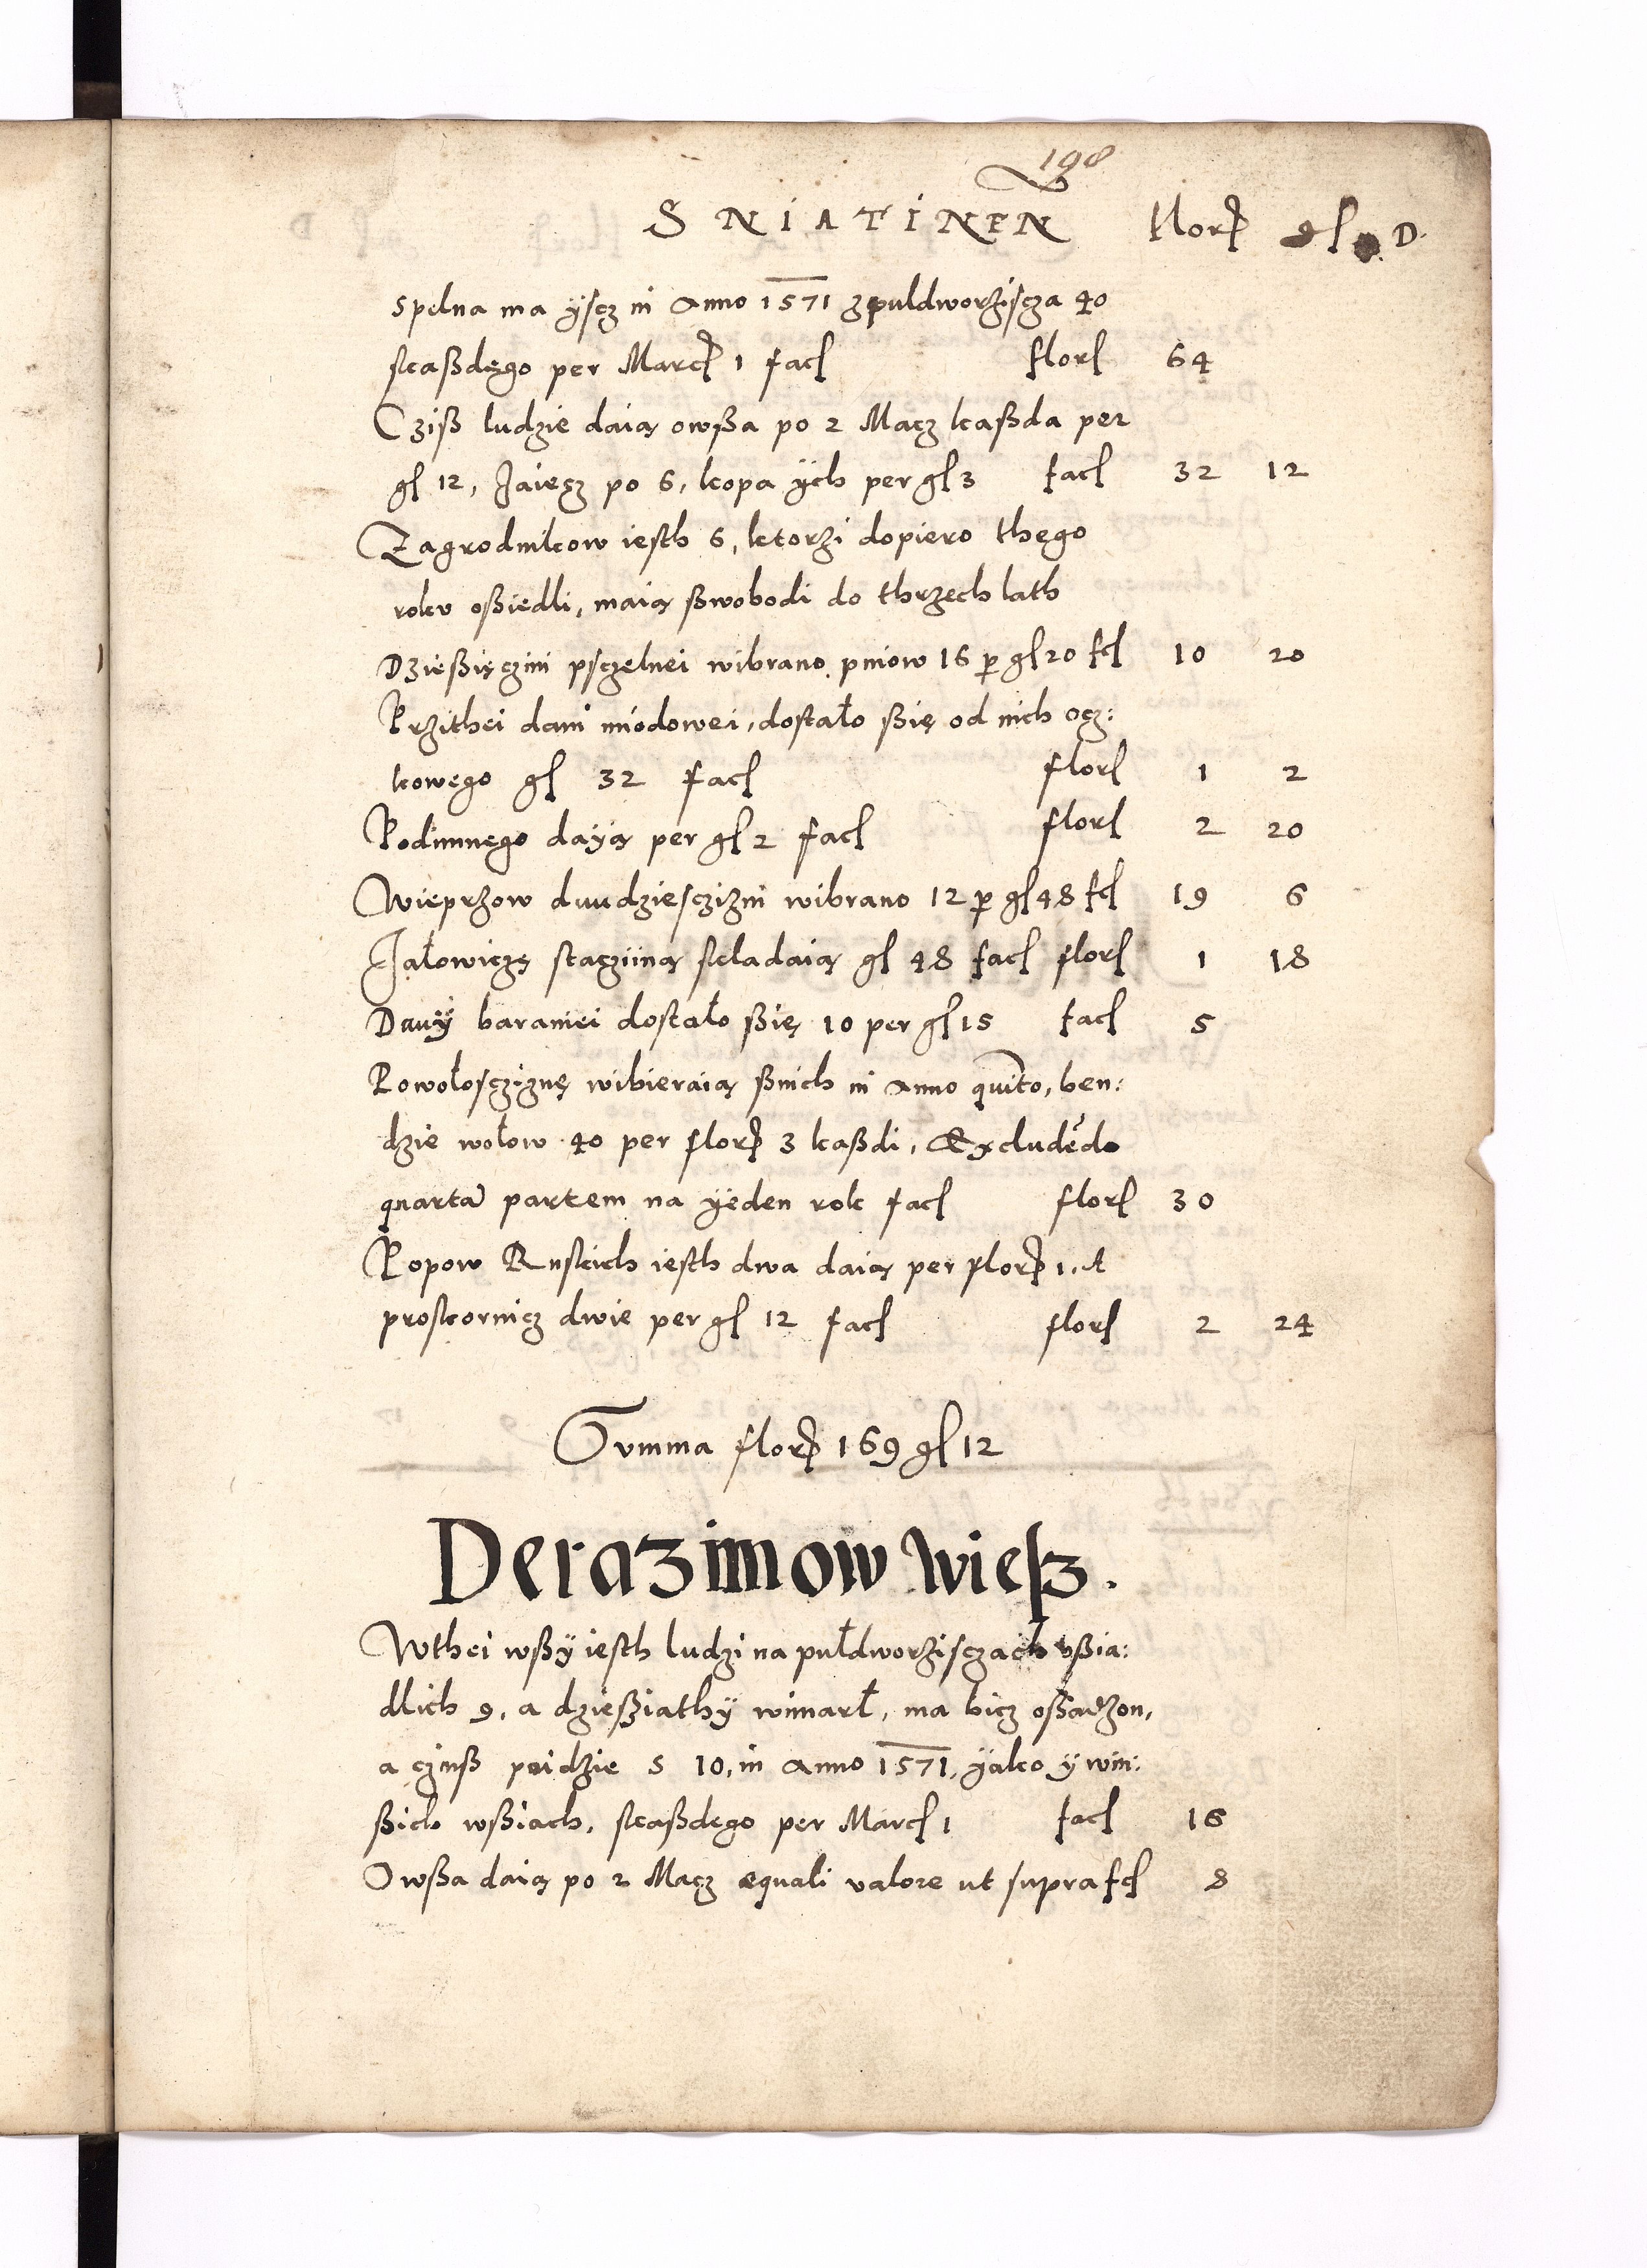 198
SNIATINEN florꝭ gl D.
spelna ma ÿscz in Anno 1571 zpuldworziscza 40
skaßdego per Marcꝭ 1 facꝭ florꝭ 64
Cziß ludzie daią owßa po 2 Macz kaßda per
gl 12, Jaiecz po 6, kopa ÿch per gl 3 facꝭ 32 12
Zagrodnikow iesth 6, ktorzi dopiero thego
rokv oßiedli, maią ßwobodi do thrzech lath
Dzießięczini psczelnei wibrano pniow 16 p gl 20 fcꝭ 10 20
Przithei dani miodowei, dostało ßię od nich ocz:
kowego gl 32 facꝭ florꝭ 1 2
Podimnego daÿą per gl 2 facꝭ florꝭ 2 20
Wieprzow dwudziescizni wibrano 12 p gl 48 fcꝭ 19 6
Jałowiczę stacziiną składaią gl 48 facꝭ florꝭ 1 18
Danÿ baraniei dostało ßię 10 per gl 15 facꝭ 5
Powołoscziznę wibieraią ßnich in Anno quito, ben:
dzie wołow 40 per florꝭ 3 kaßdi, Excludēdo
quartā partem na ÿeden rok facꝭ florꝭ 30
Popow Ruskich iesth dwa daią per florꝭ 1, A
proskornicz dwie per gl 12 facꝭ florꝭ 2 24
Summa florꝭ 169 gl 12
Derazimow wiesz.
Wthei wßÿ iesth ludzi na pułdworzisczach vßia:
dlich 9, a dzießiathÿ wimarł, ma bicz oßadzon,
a czinß poidzie s 10, in Anno 1571, ÿako ÿ win:
ßich wßiach, skaßdego per Marcꝭ 1 facꝭ 16
Owßa daią po 2 Macz æquali valore ut supra fcꝭ 8